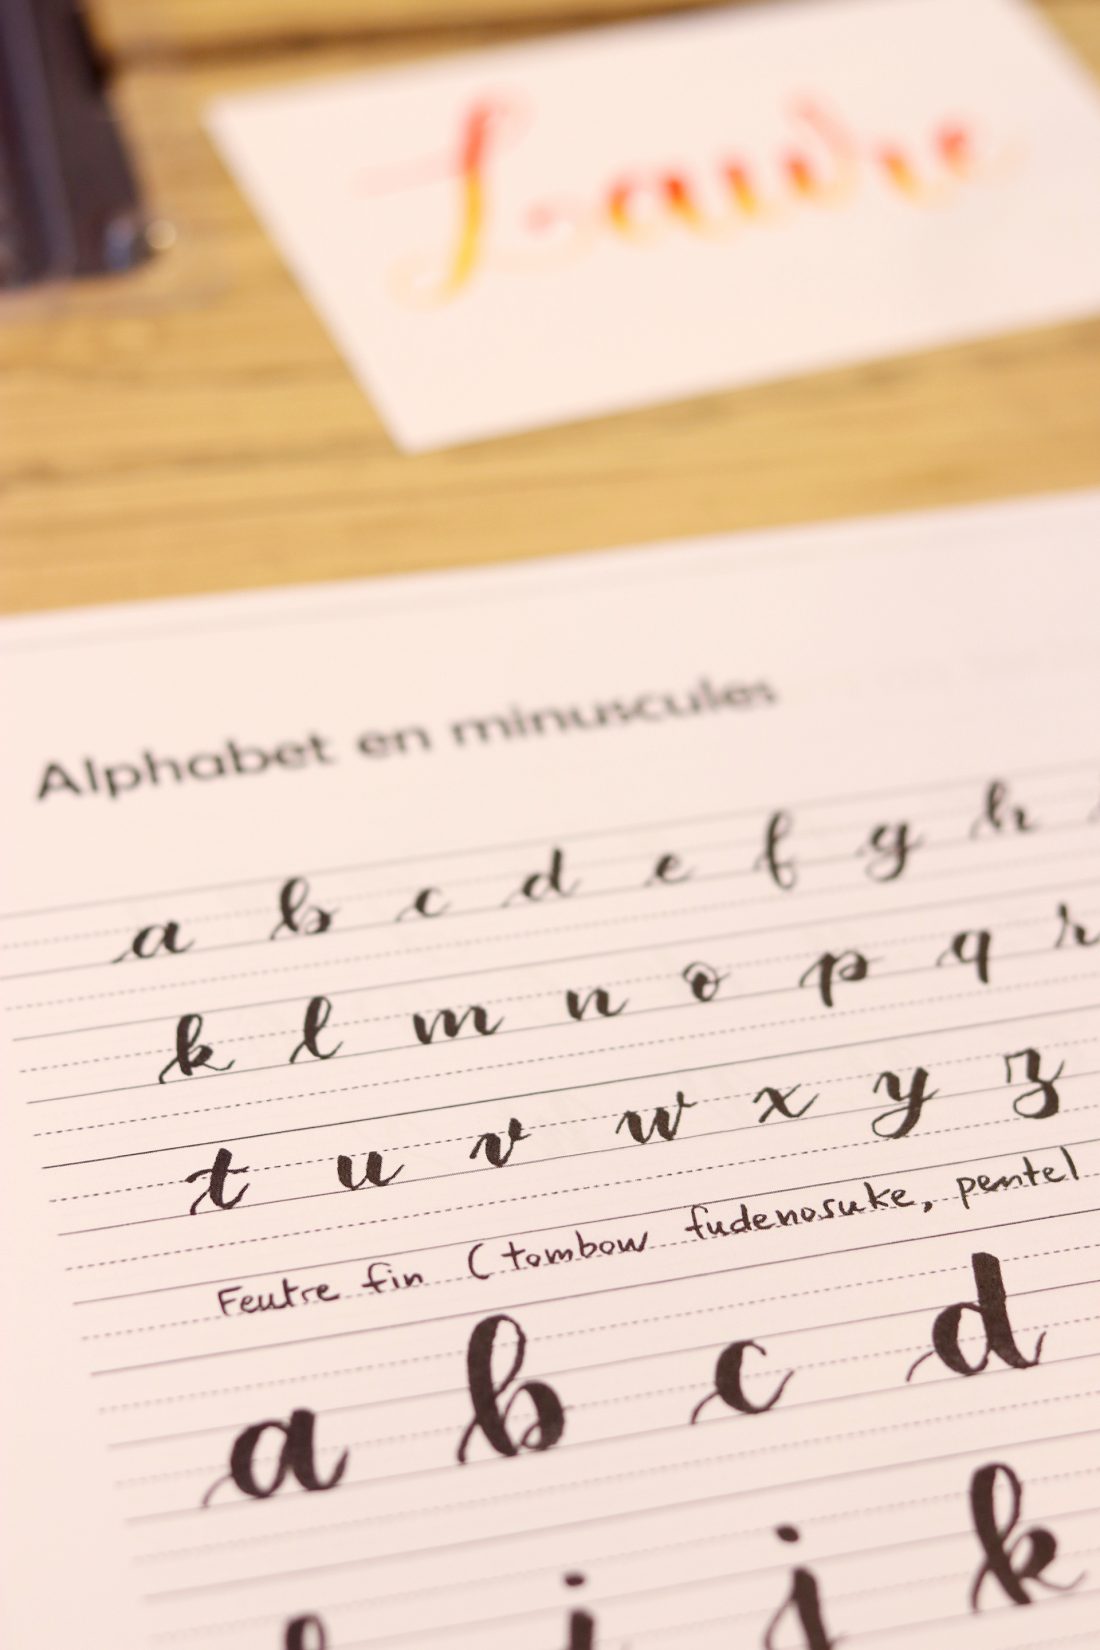 Laure
Alphabet en minuscules
a b c d e f g h
k l m n o p q r
t u v w x y z
Feutre fin (tombow fudenosuke, pentel
a b c d
i j k